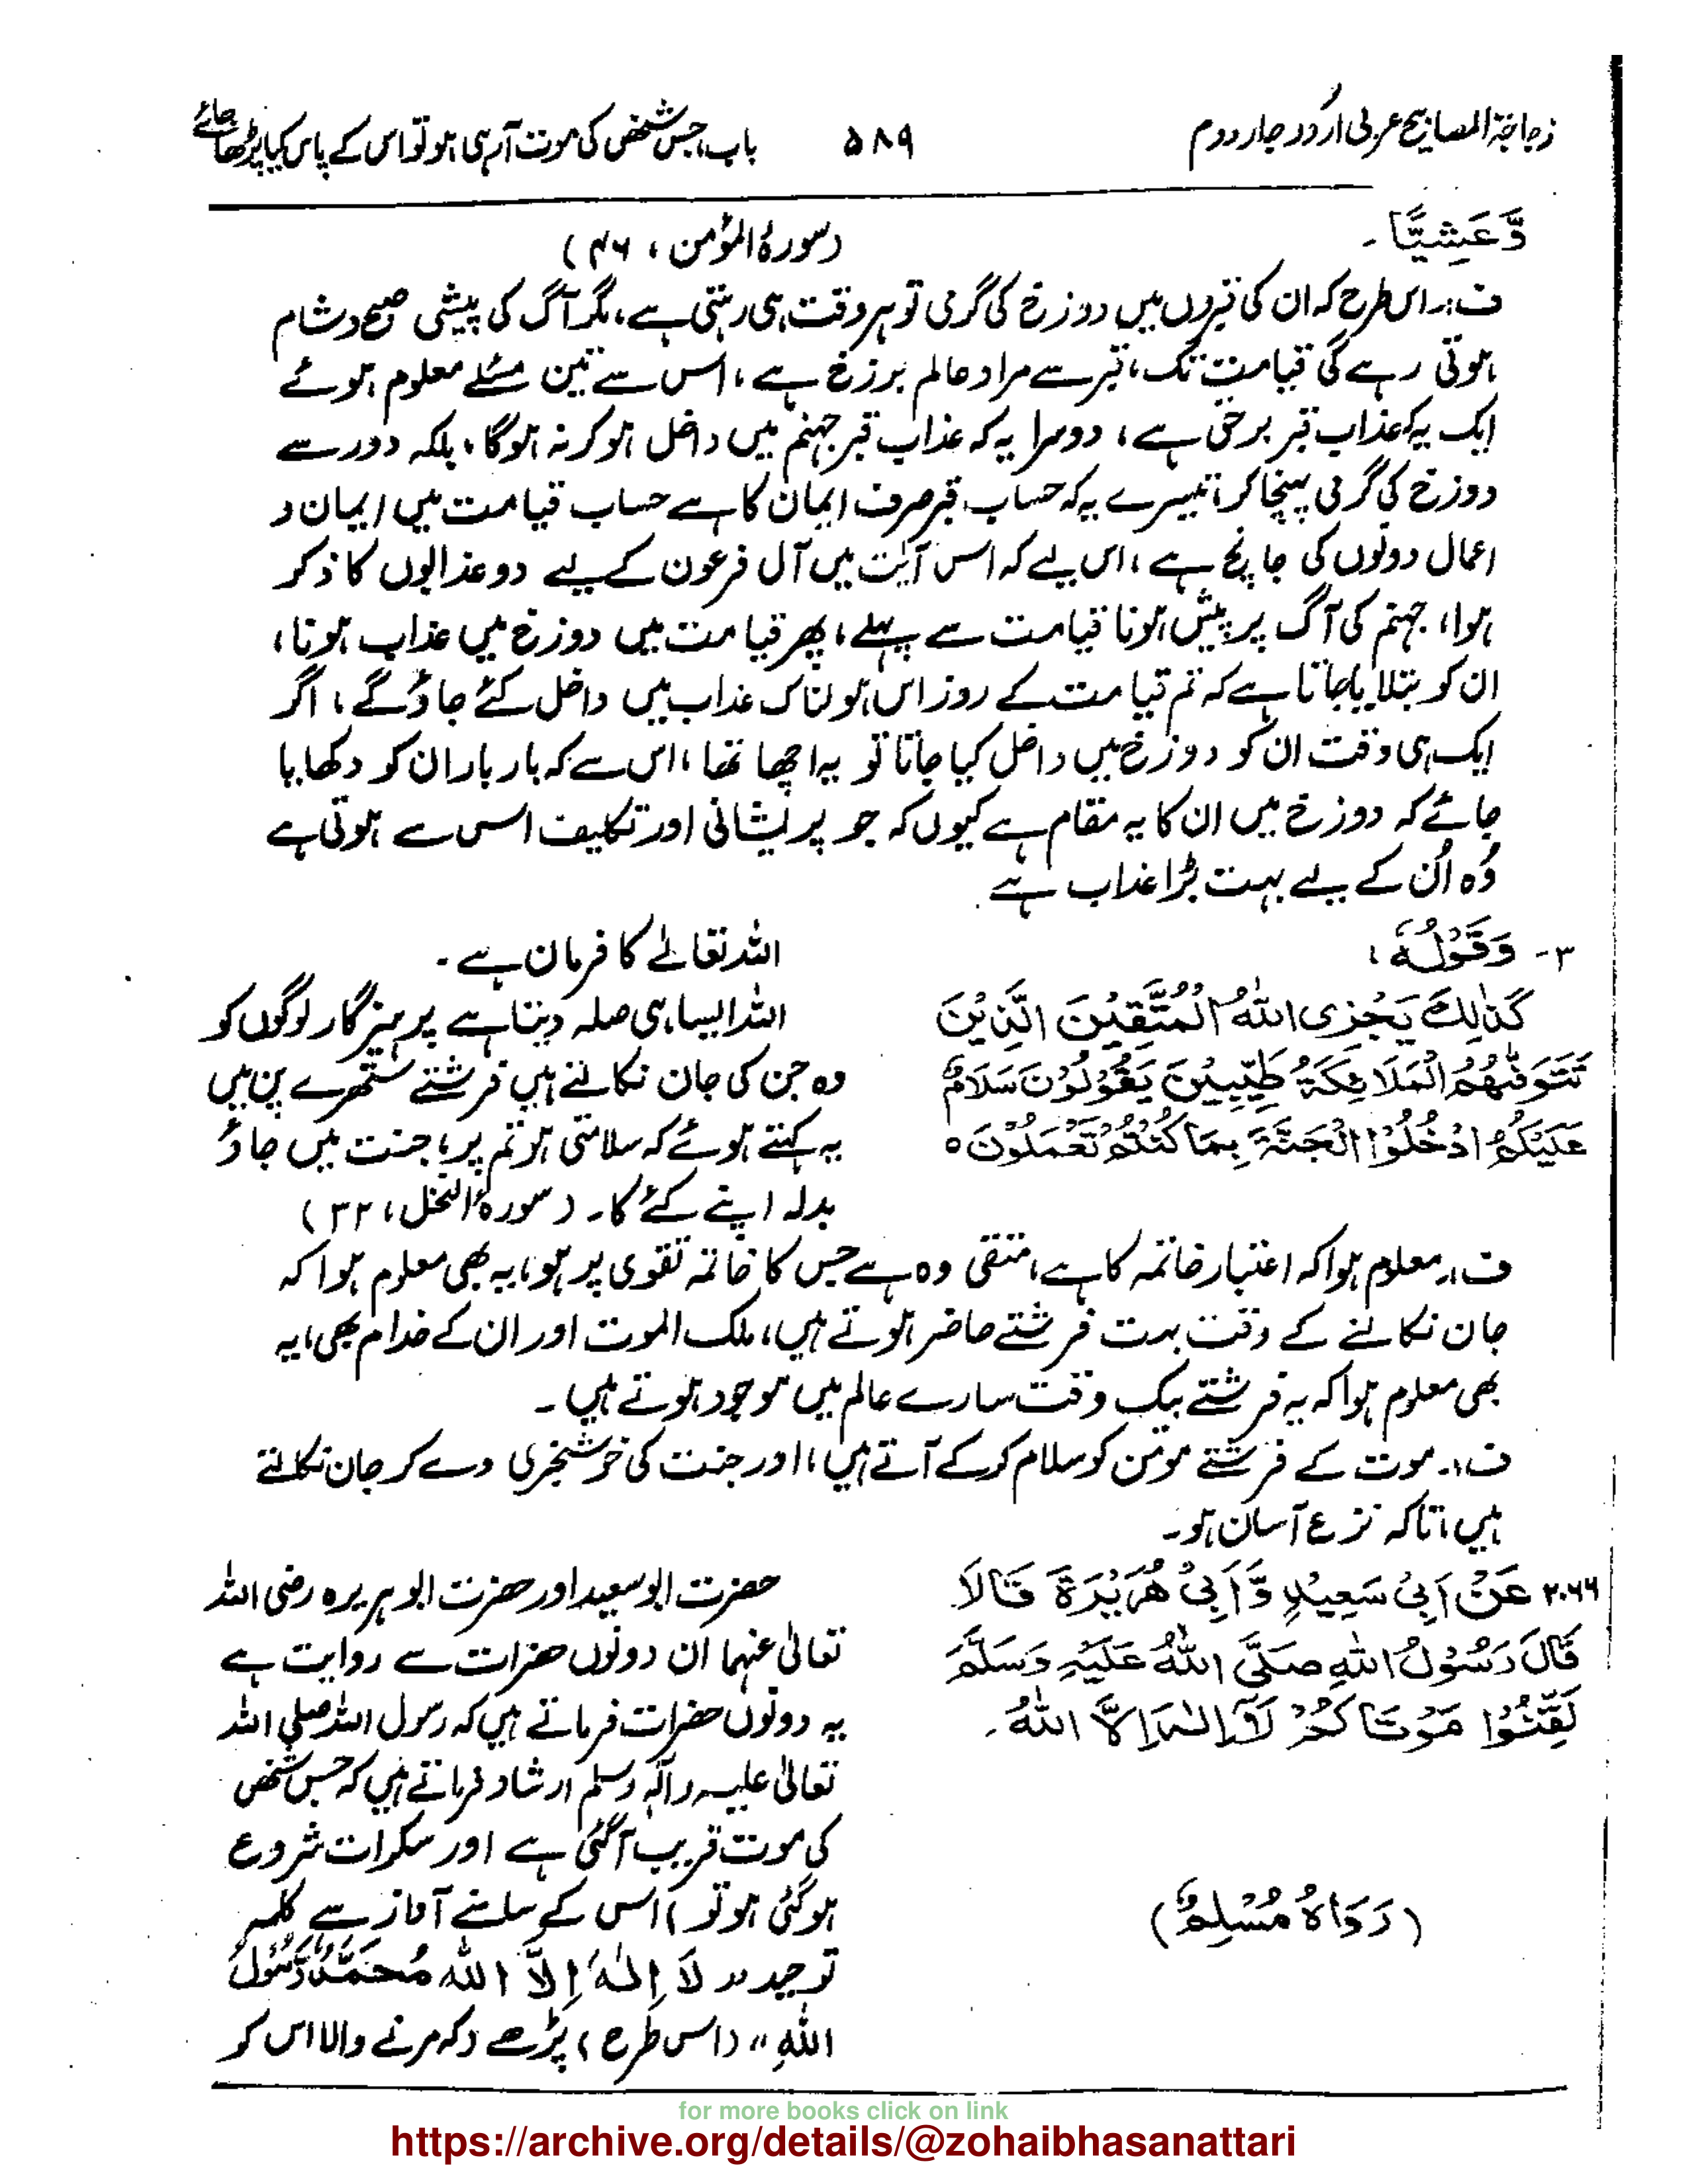 زجاجۃ المصابیح عربی اردو جلد دوم
۵۸۹
باب، جس شخص کی موت آرہی ہو تو اس کے پاس کیا پڑھا جائے
وَّعَشِيًّا ۔
(سورۂ المؤمن ، ۴۶)
ف:۔ اس طرح کہ ان کی قبروں میں دوزخ کی گرمی تو ہر وقت ہی رہتی ہے، مگر آگ کی پیشی صبح و شام
ہوتی رہے گی قیامت تک، قبر سے مراد عالم برزخ ہے، اس سے تین مسئلے معلوم ہوئے
ایک یہ کہ عذاب قبر برحق ہے، دوسرا یہ کہ عذاب قبر جہنم میں داخل ہو کر نہ ہوگا، بلکہ دور سے
دوزخ کی گرمی پہنچا کر، تیسرے یہ کہ حساب قبر صرف ایمان کا ہے حساب قیامت میں ایمان و
اعمال دونوں کی جانچ ہے، اس لیے کہ اس آیت میں آل فرعون کے لیے دو عذابوں کا ذکر
ہوا، جہنم کی آگ پر پیش ہونا قیامت سے پہلے، پھر قیامت میں دوزخ میں عذاب ہونا،
ان کو بتلایا جاتا ہے کہ تم قیامت کے روز اس ہولناک عذاب میں داخل کئے جاؤ گے، اگر
ایک ہی وقت ان کو دوزخ میں داخل کیا جاتا تو یہ اچھا تھا، اس سے کہ بار بار ان کو دکھایا
جائے کہ دوزخ میں ان کا یہ مقام ہے کیوں کہ جو پریشانی اور تکلیف اس سے ہوتی ہے
وُہ اُن کے لیے بہت بڑا عذاب ہے
۳- وَقَوْلُهٗ ،
كَذٰلِكَ يَجْزِى اللّٰهُ الْمُتَّقِيْنَ الَّذِيْنَ
تَتَوَفّٰهُمُ الْمَلَائِكَةُ طَيِّبِيْنَ يَقُوْلُوْنَ سَلَامٌ
عَلَيْكُمُ ادْخُلُوا الْجَنَّةَ بِمَا كُنْتُمْ تَعْمَلُوْنَ ہ
اللہ تعالےٰ کا فرمان ہے ۔
اللہ ایسا ہی صلہ دیتا ہے پرہیزگار لوگوں کو
وہ جن کی جان نکالتے ہیں فرشتے ستھرے پن میں
یہ کہتے ہوئے کہ سلامتی ہو تم پر، جنت میں جاؤ
بدلہ اپنے کئے کا۔ (سورۂ النحل، ۳۲)
ف:۔ معلوم ہوا کہ اعتبار خاتمہ کا ہے، متقی وہ ہے جس کا خاتمہ تقوی پر ہو، یہ بھی معلوم ہوا کہ
جان نکالنے کے وقت بہت فرشتے حاضر ہوتے ہیں، ملک الموت اور ان کے خدام بھی، یہ
بھی معلوم ہوا کہ یہ فرشتے بیک وقت سارے عالم میں موجود ہوتے ہیں ۔
ف:۔ موت کے فرشتے مومن کو سلام کر کے آتے ہیں، اور جنت کی خوشخبری دے کر جان نکالتے
ہیں، تاکہ نزع آسان ہو۔
۲۰۶۶ عَنْ اَبِيْ سَعِيْدٍ وَّاَبِيْ هُرَيْرَةَ قَالَا
قَالَ رَسُوْلُ اللّٰهِ صَلَّى اللّٰهُ عَلَيْهِ وَسَلَّمَ
لَقِّنُوْا مَوْتَاكُمْ لَآ اِلٰهَ اِلَّا اللّٰهُ ۔
(رَوَاهُ مُسْلِمٌ)
حضرت ابو سعید اور حضرت ابو ہریرہ رضی اللہ
تعالیٰ عنہما ان دونوں حضرات سے روایت ہے
یہ دونوں حضرات فرماتے ہیں کہ رسول اللہ صلی اللہ
تعالیٰ علیہ وآلہٖ وسلم ارشاد فرماتے ہیں کہ جس شخص
کی موت قریب آگئی ہے اور سکرات شروع
ہوگئی ہو تو) اس کے سامنے آواز سے کلمہ
توحید " لَا اِلٰهَ اِلَّا اللّٰه مُحَمَّدٌ رَّسُوْلُ
اللّٰهِ " (اس طرح) پڑھے (کہ مرنے والا اس کو
for more books click on link
https://archive.org/details/@zohaibhasanattari